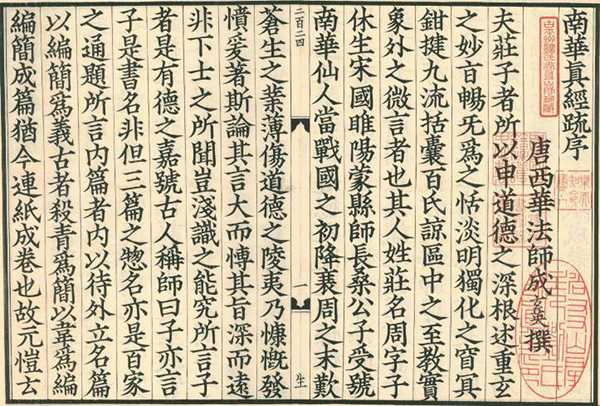 南華真經疏序
唐西華法師成玄英撰
夫莊子者所以申道德之深根述重玄
之妙旨暢无爲之恬淡明獨化之窅冥
鉗揵九流括囊百氏諒區中之至教實
象外之微言者也其人姓莊名周字子
休生宋國睢陽蒙縣師長桑公子受號
南華仙人當戰國之初降衰周之末歎
二百二四 一 生
蒼生之業薄傷道德之陵夷乃慷慨發
憤爰著斯論其言大而博其旨深而遠
非下士之所聞豈淺識之能究所言子
者是有德之嘉號古人稱師曰子亦言
子是書名非但三篇之惣名亦是百家
之通題所言内篇者内以待外立名篇
以編簡爲義古者殺青爲簡以韋爲編
編簡成篇猶今連紙成卷也故元愷云